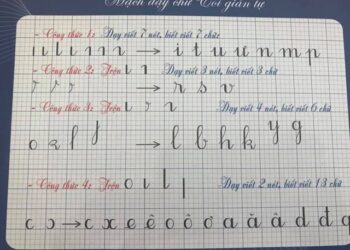 Mạch dạy chữ Tối giản tự
- Công thức 1: Dạy viết 7 nét, biết viết 7 chữ
→ i t u ư n m p
- Công thức 2: Trộn ɩ ı Dạy viết 3 nét, biết viết 3 chữ
→ r s v
- Công thức 3: Trộn Dạy viết 4 nét, biết viết 6 chữ
→ l b h k y g
- Công thức 4: Trộn o ı l Dạy viết 2 nét, biết viết 13 chữ
c ɔ → c x e ê o ô ơ a ă â d đ q